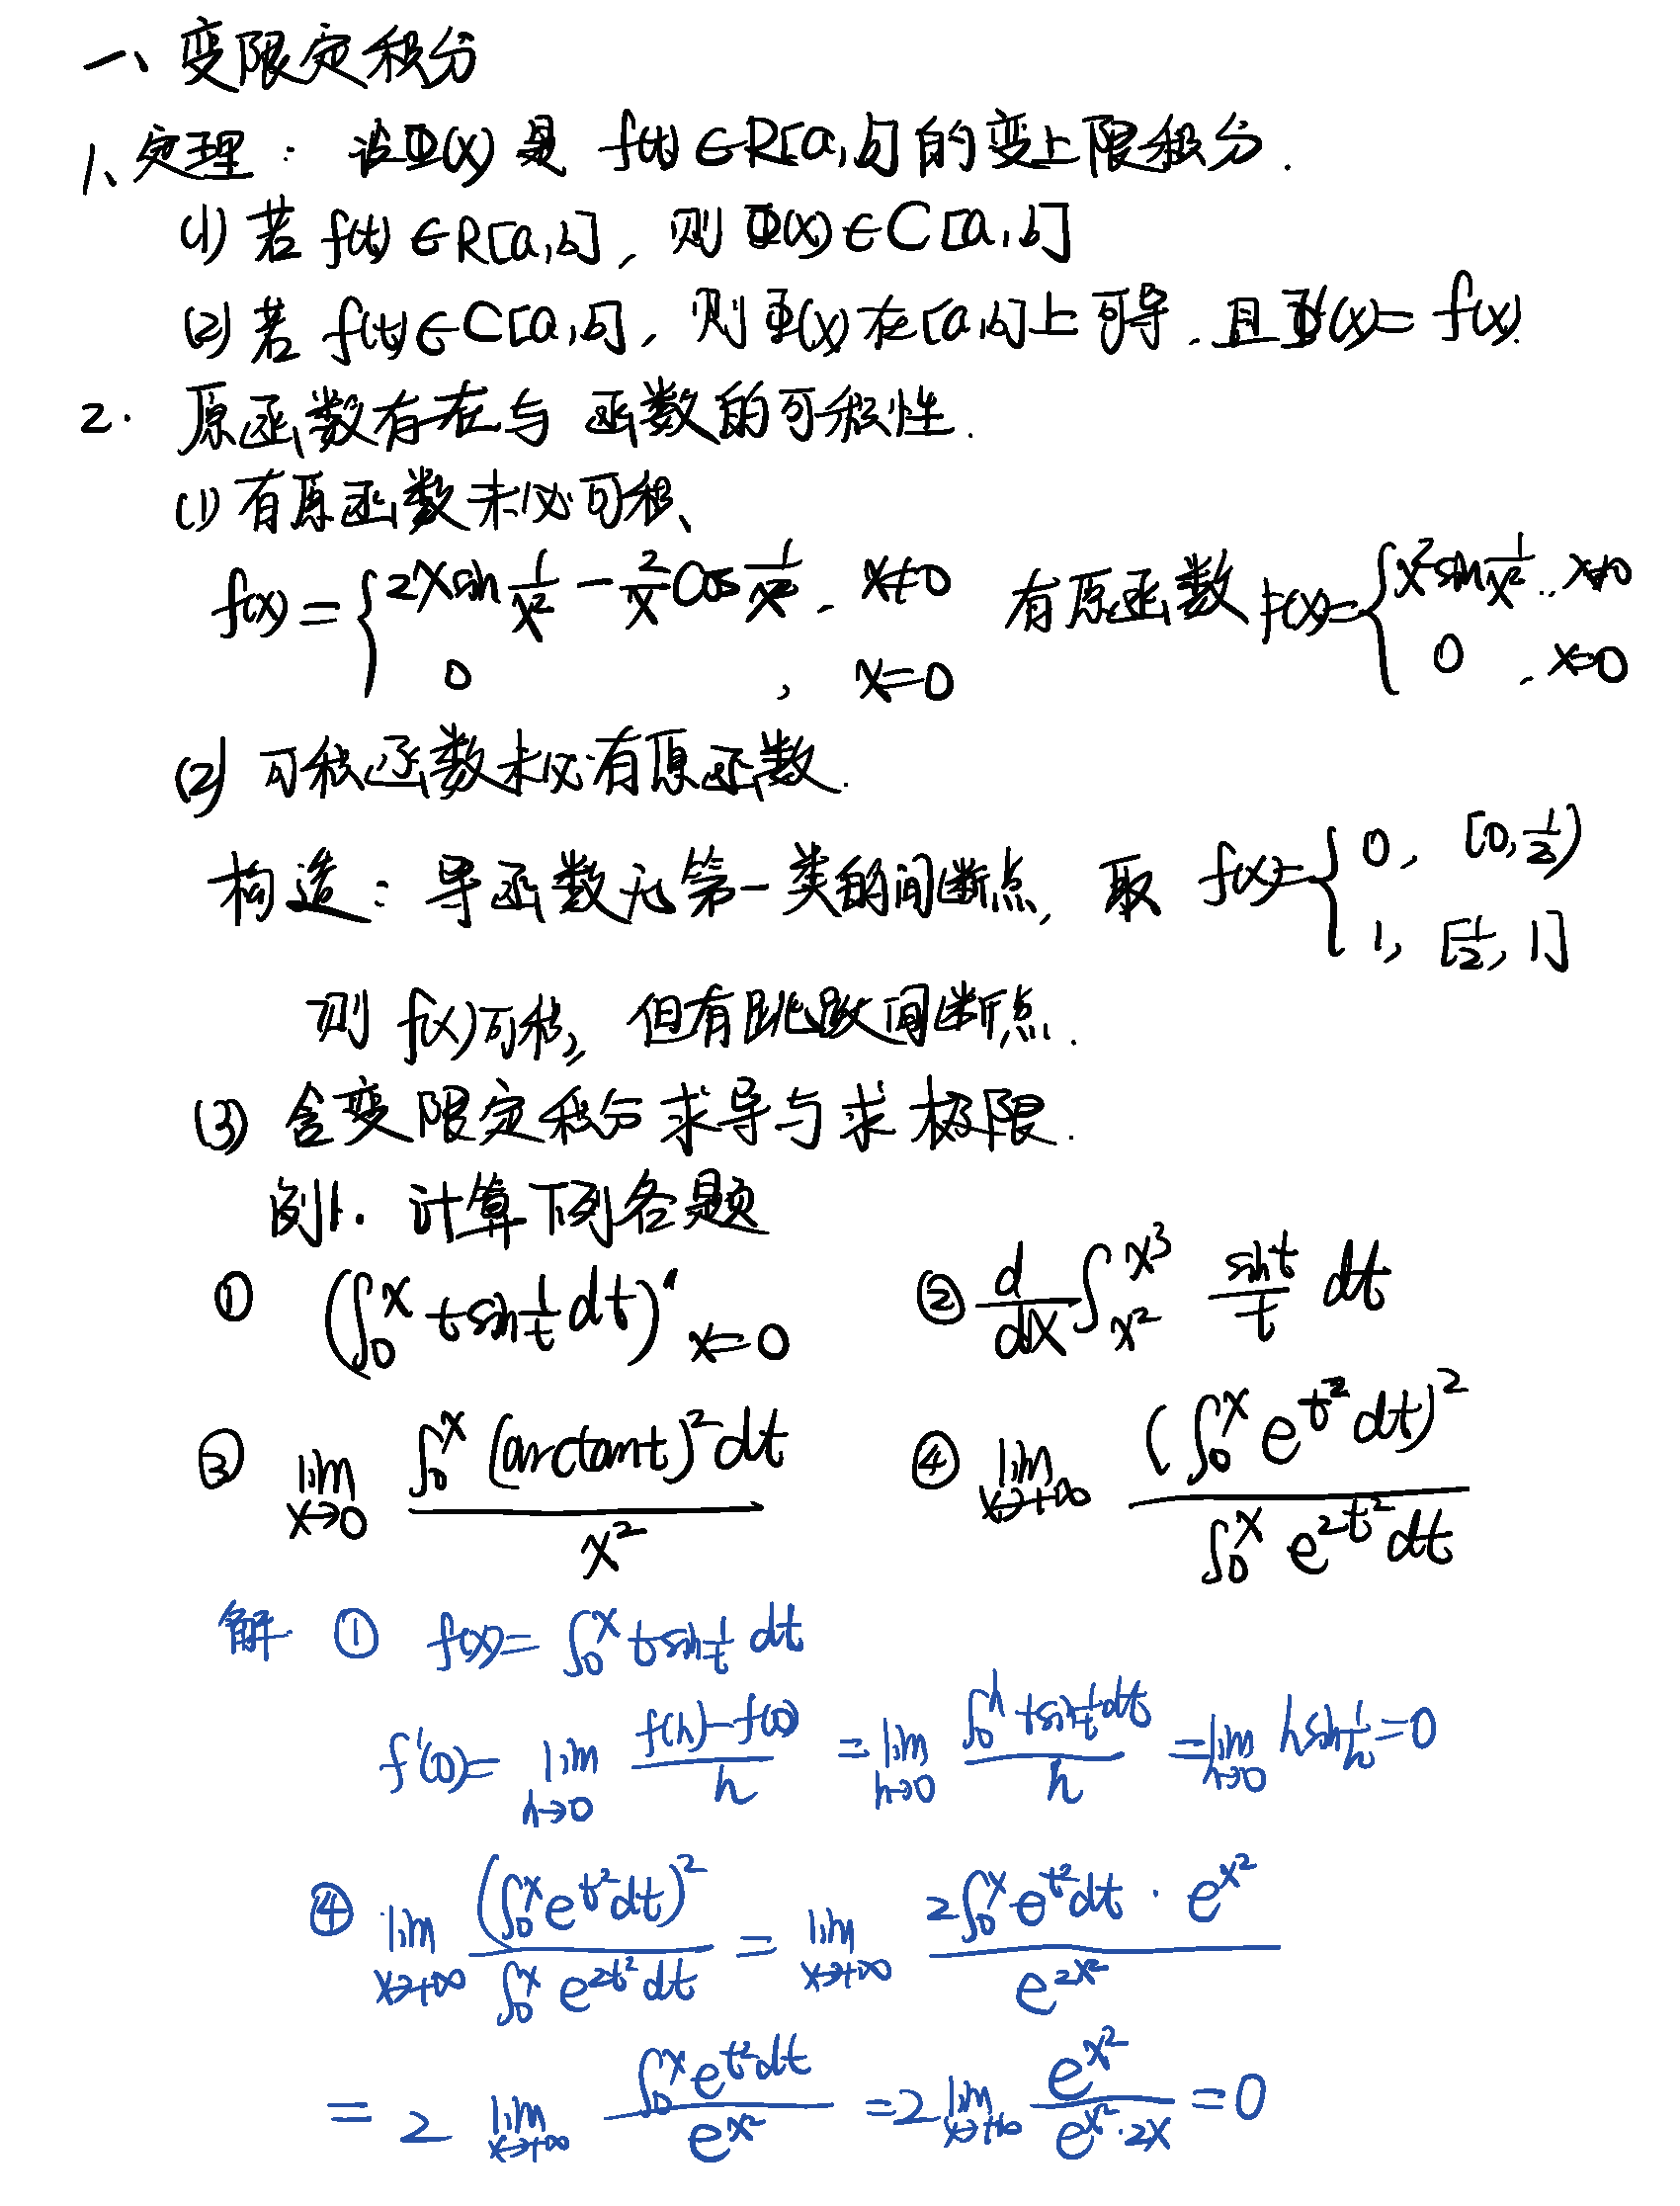 一、变限定积分
1、定理：设Φ(x)是 f(t)∈R[a,b]的变上限积分.
(1) 若 f(t)∈R[a,b]，则 Φ(x)∈C[a,b]
(2) 若 f(t)∈C[a,b]，则Φ(x)在[a,b]上可导.且Φ'(x)=f(x).
2. 原函数存在与函数的可积性.
(1) 有原函数未必可积、
f(x)={2xsin 1/x² - 2/x cos 1/x², x≠0 有原函数 F(x)={x²sin 1/x², x≠0
0, x=0 0, x=0
(2) 可积函数未必有原函数.
构造：导函数无第一类的间断点, 取 f(x)={0, [0,1/2)
1, [1/2,1]
则 f(x)可积, 但有跳跃间断点.
(3) 含变限定积分求导与求极限.
例1. 计算下列各题
① (∫₀ˣ tsin 1/t dt)' x=0 ② d/dx ∫_{x²}^{x³} sint/t dt
③ lim x→0 ∫₀ˣ (arctant)² dt / x² ④ lim x→+∞ (∫₀ˣ e^{t²} dt)² / ∫₀ˣ e^{2t²} dt
解 ① f(x)=∫₀ˣ tsin 1/t dt
f'(0)= lim h→0 (f(h)-f(0))/h = lim h→0 ∫₀ʰ tsin 1/t dt / h = lim h→0 hsin 1/h =0
④ lim x→+∞ (∫₀ˣ e^{t²} dt)² / ∫₀ˣ e^{2t²} dt = lim x→+∞ 2∫₀ˣ e^{t²} dt · e^{x²} / e^{2x²}
= 2 lim x→+∞ ∫₀ˣ e^{t²} dt / e^{x²} = 2 lim x→+∞ e^{x²} / e^{x²}·2x = 0